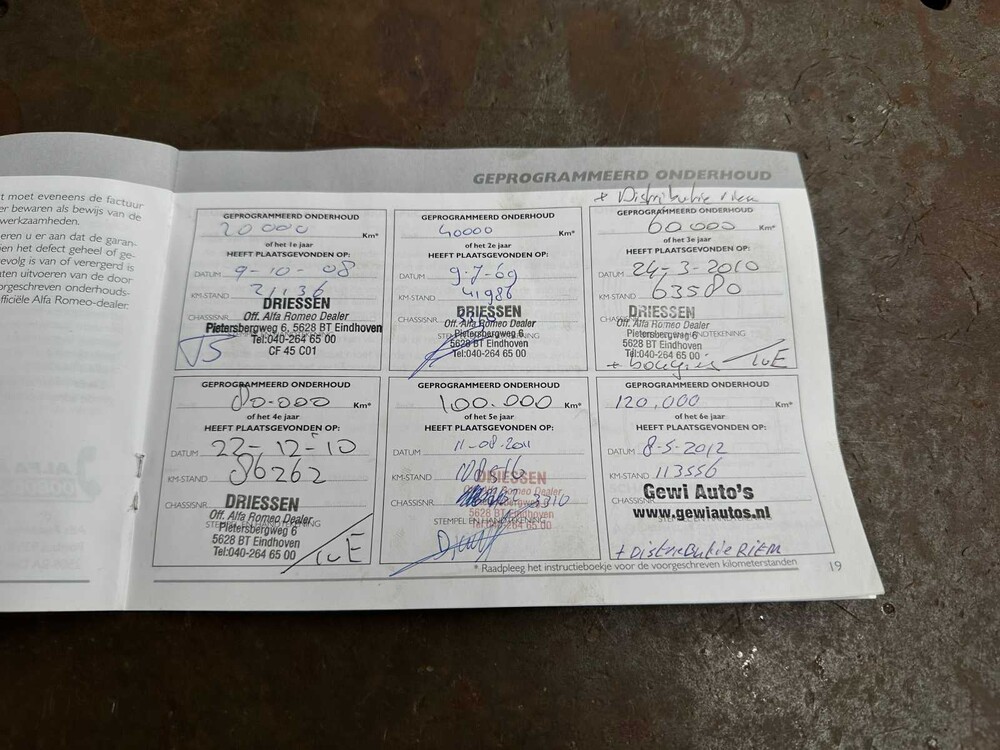 t moet eveneens de factuur
er bewaren als bewijs van de
werkzaamheden.
eren u er aan dat de garan-
ien het defect geheel of ge-
evolg is van of verergerd is
aten uitvoeren van de door
orgeschreven onderhouds-
fficiële Alfa Romeo-dealer.
GEPROGRAMMEERD ONDERHOUD
GEPROGRAMMEERD ONDERHOUD
20000 Km*
of het 1e jaar
HEEFT PLAATSGEVONDEN OP:
DATUM 9-10-08
KM-STAND 21136
CHASSISNR.
DRIESSEN
Off. Alfa Romeo Dealer
Pietersbergweg 6, 5628 BT Eindhoven
Tel:040-264 65 00
CF 45 C01
GEPROGRAMMEERD ONDERHOUD
40000 Km*
of het 2e jaar
HEEFT PLAATSGEVONDEN OP:
DATUM 9-7-09
KM-STAND 41986
CHASSISNR.
DRIESSEN
Off. Alfa Romeo Dealer
Pietersbergweg 6
5628 BT Eindhoven
Tel:040-264 65 00
+ Distributie riem
GEPROGRAMMEERD ONDERHOUD
60.000 Km*
of het 3e jaar
HEEFT PLAATSGEVONDEN OP:
DATUM 24-3-2010
KM-STAND 63580
CHASSISNR.
DRIESSEN
Off. Alfa Romeo Dealer
Pietersbergweg 6
5628 BT Eindhoven
Tel:040-264 65 00
+ bougies
GEPROGRAMMEERD ONDERHOUD
80.000 Km*
of het 4e jaar
HEEFT PLAATSGEVONDEN OP:
DATUM 22-12-10
KM-STAND 86262
CHASSISNR.
DRIESSEN
Off. Alfa Romeo Dealer
STEMPEL EN HANDTEKENING
Pietersbergweg 6
5628 BT Eindhoven
Tel:040-264 65 00
GEPROGRAMMEERD ONDERHOUD
100.000 Km*
of het 5e jaar
HEEFT PLAATSGEVONDEN OP:
DATUM 11-08-2011
KM-STAND
DRIESSEN
CHASSISNR. 3310
Off. Alfa Romeo Dealer
5628 BT Eindhoven
STEMPEL EN HANDTEKENING
Tel:040-264 65 00
GEPROGRAMMEERD ONDERHOUD
120.000 Km*
of het 6e jaar
HEEFT PLAATSGEVONDEN OP:
DATUM 8-5-2012
KM-STAND 113556
CHASSISNR.
Gewi Auto's
www.gewiautos.nl
+ DISTRIBUTIE RIEM
* Raadpleeg het instructieboekje voor de voorgeschreven kilometerstanden
19